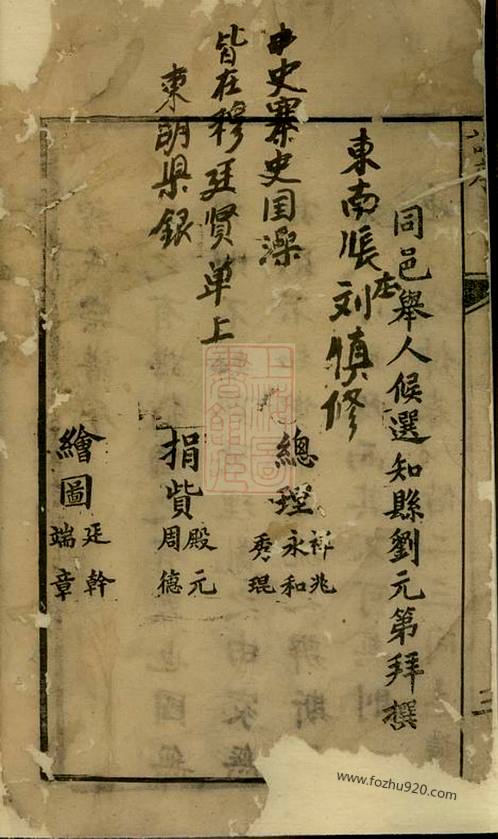 同邑舉人候選知縣劉元第拜撰
東南張庄刘慎修
中史寨史国藻
皆在穆廷贤单上
東明県銀
總理
祥兆
永和
秀琨
捐貲
殿元
周德
繪圖
廷幹
端章
三
上海圖書館藏
www.fozhu920.com